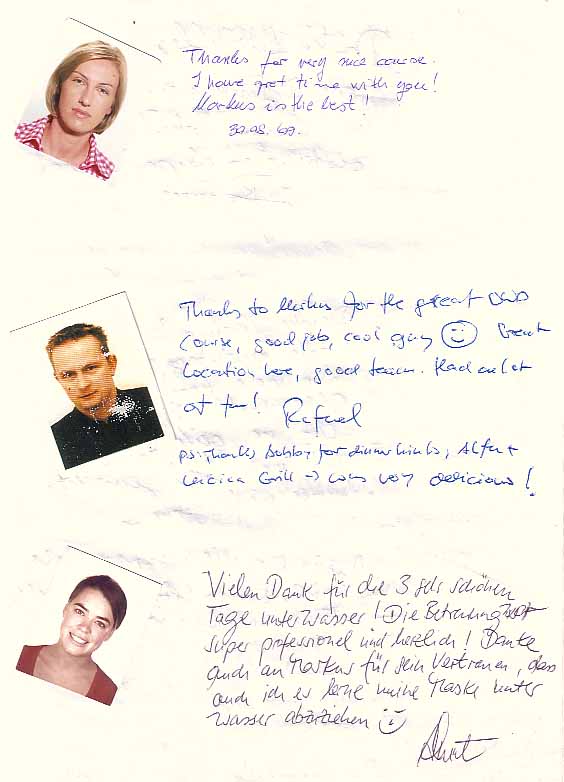 Thanks for very nice course.
I have gret time with you!
Markus is the best!
Thanks to Markus for the great
Course, good job, cool guy Great
Location here, good team. Had a lot
of fun! Rafael
PS: Thanks for dinner hints,
Grill → was very delicious!
Vielen Dank für die 3 sehr schönen
Tage unter Wasser! Die Betreuung war
super professionel und herzlich! Danke
auch an Markus für sein Vertrauen, dass
auch ich es lerne meine Maske unter
Wasser abzuziehen